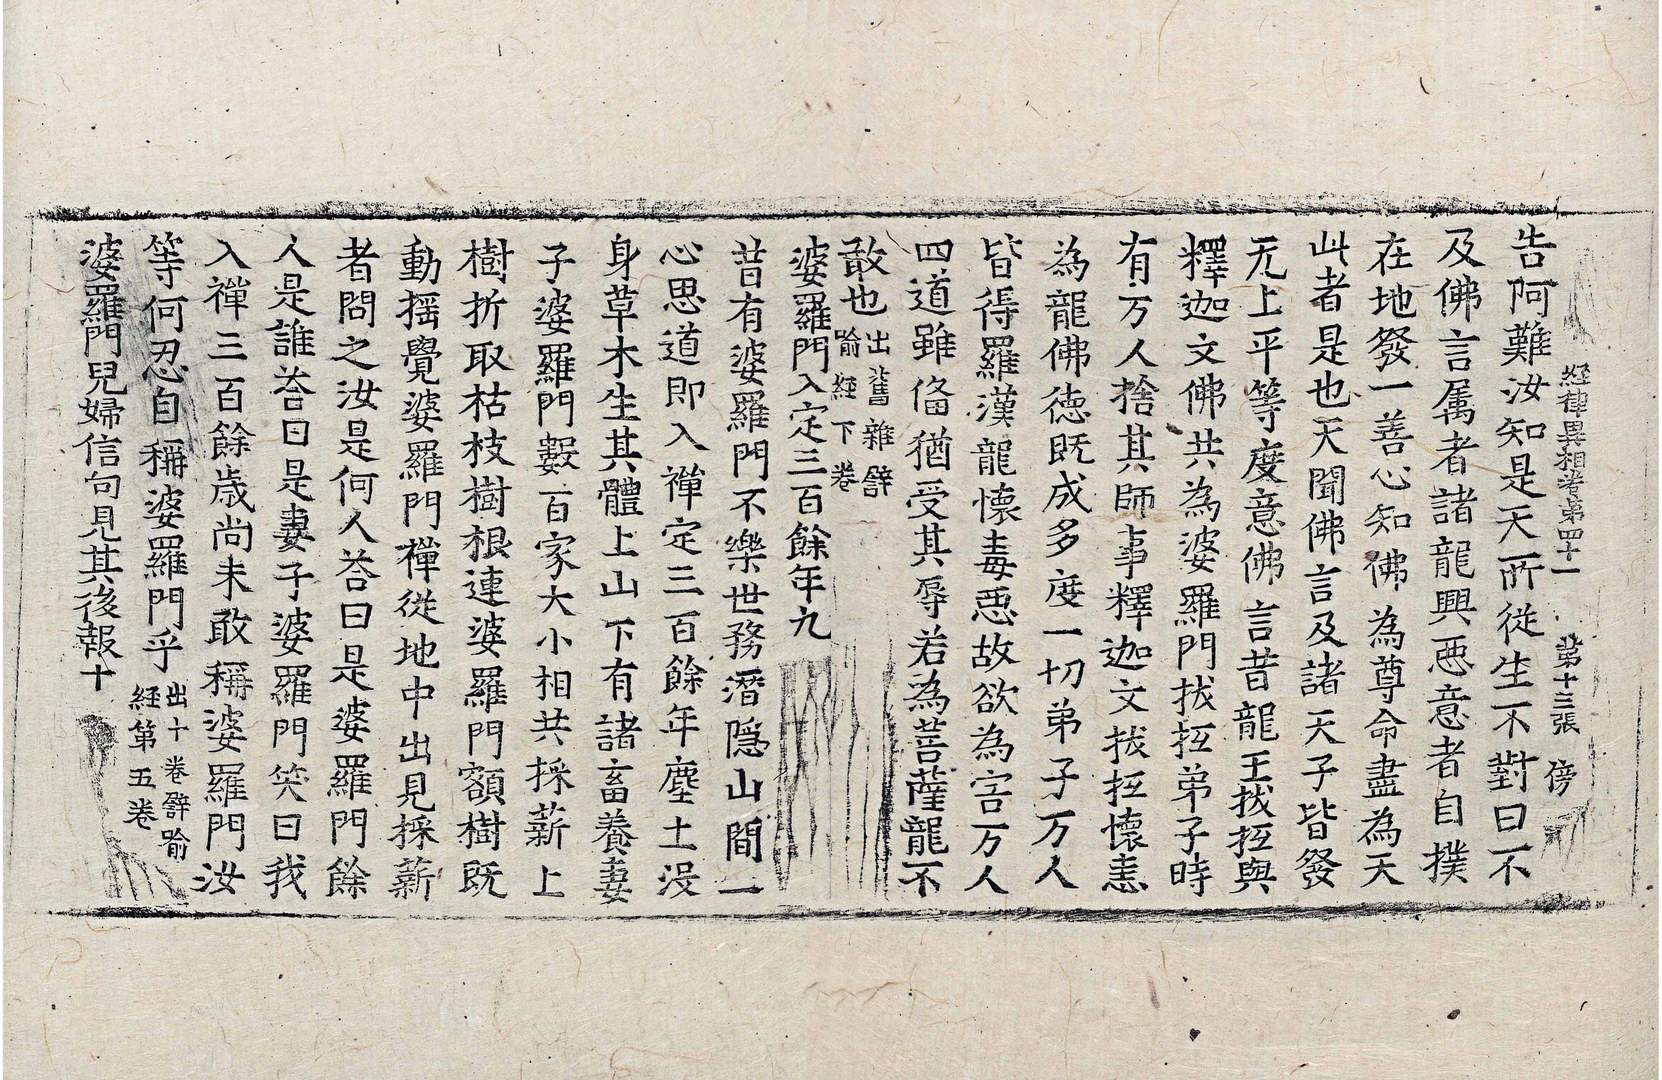 經律異相卷第四十一 第十三張 傍
告阿難汝知是天所從生不對曰不
及佛言属者諸龍興恶意者自撲
在地發一善心知佛為尊命盡為天
此者是也天聞佛言及諸天子皆發
无上平等度意佛言昔龍王拔抂與
釋迦文佛共為婆羅門拔抂弟子時
有万人捨其師事釋迦文拔抂懷恚
為龍佛徳既成多度一切弟子万人
皆得羅漢龍懷毒恶故欲為害万人
四道雖俻猶受其辱若為菩薩龍不
敢也 出舊雜譬喻經下卷
婆羅門入定三百餘年九
昔有婆羅門不樂世務潛隠山間一
心思道即入禪定三百餘年塵土没
身草木生其體上山下有諸畜養妻
子婆羅門數百家大小相共採薪上
樹折取枯枝樹根連婆羅門額樹既
動揺覺婆羅門禪從地中出見採薪
者問之汝是何人荅曰是婆羅門餘
人是誰荅曰是妻子婆羅門笑曰我
入禪三百餘歳尚未敢稱婆羅門汝
等何忍自稱婆羅門乎 出十卷譬喻經第五卷
婆羅門兒婦信句見其後報十